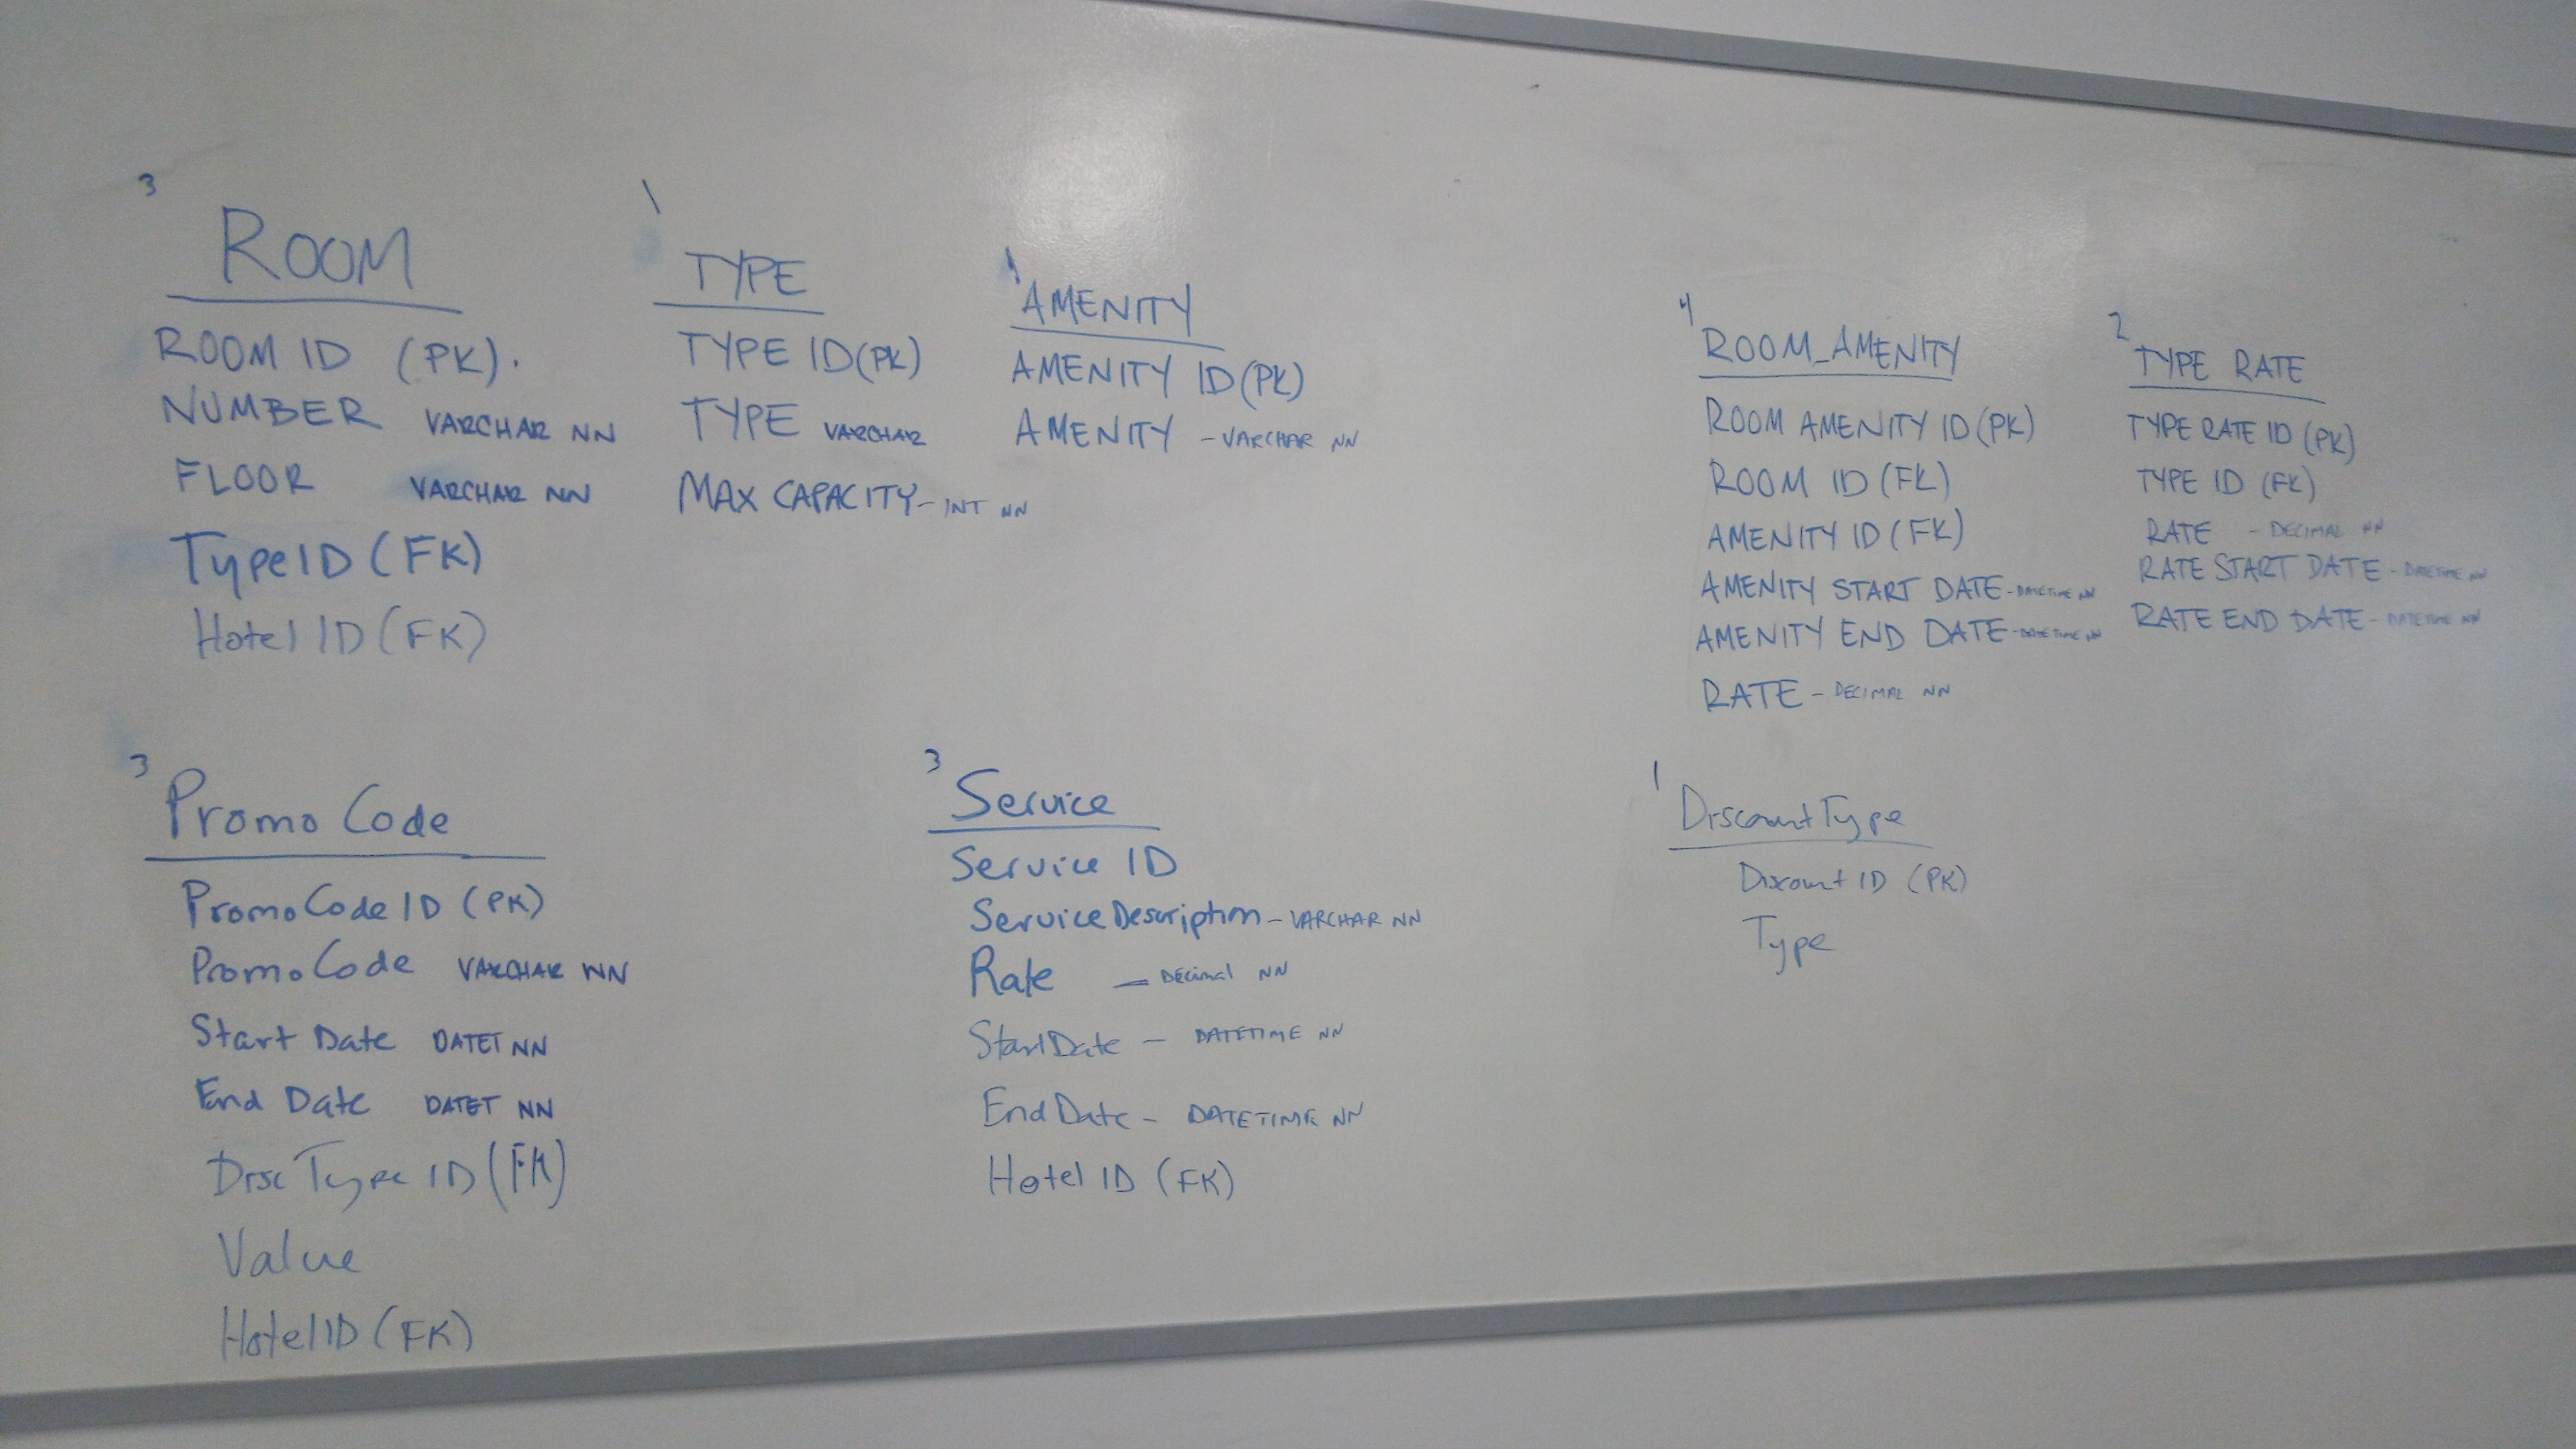 3
ROOM
ROOM ID (PK).
NUMBER VARCHAR NN
FLOOR VARCHAR NN
TypeID (FK)
Hotel ID (FK)
1
TYPE
TYPE ID (PK)
TYPE VARCHAR
MAX CAPACITY - INT NN
1
AMENITY
AMENITY ID (PK)
AMENITY - VARCHAR NN
4
ROOM_AMENITY
ROOM AMENITY ID (PK)
ROOM ID (FK)
AMENITY ID (FK)
AMENITY START DATE - DATETIME NN
AMENITY END DATE - DATETIME NN
RATE - DECIMAL NN
2
TYPE RATE
TYPE RATE ID (PK)
TYPE ID (FK)
RATE - DECIMAL NN
RATE START DATE - DATETIME NN
RATE END DATE - DATETIME NN
3
Promo Code
PromoCode ID (PK)
PromoCode VARCHAR NN
Start Date DATET NN
End Date DATET NN
DiscType ID (FK)
Value
HotelID (FK)
3
Service
Service ID
ServiceDescription - VARCHAR NN
Rate - DECimal NN
StartDate - DATETIME NN
EndDate - DATETIME NN
Hotel ID (FK)
1
DiscountType
Discount ID (PK)
Type